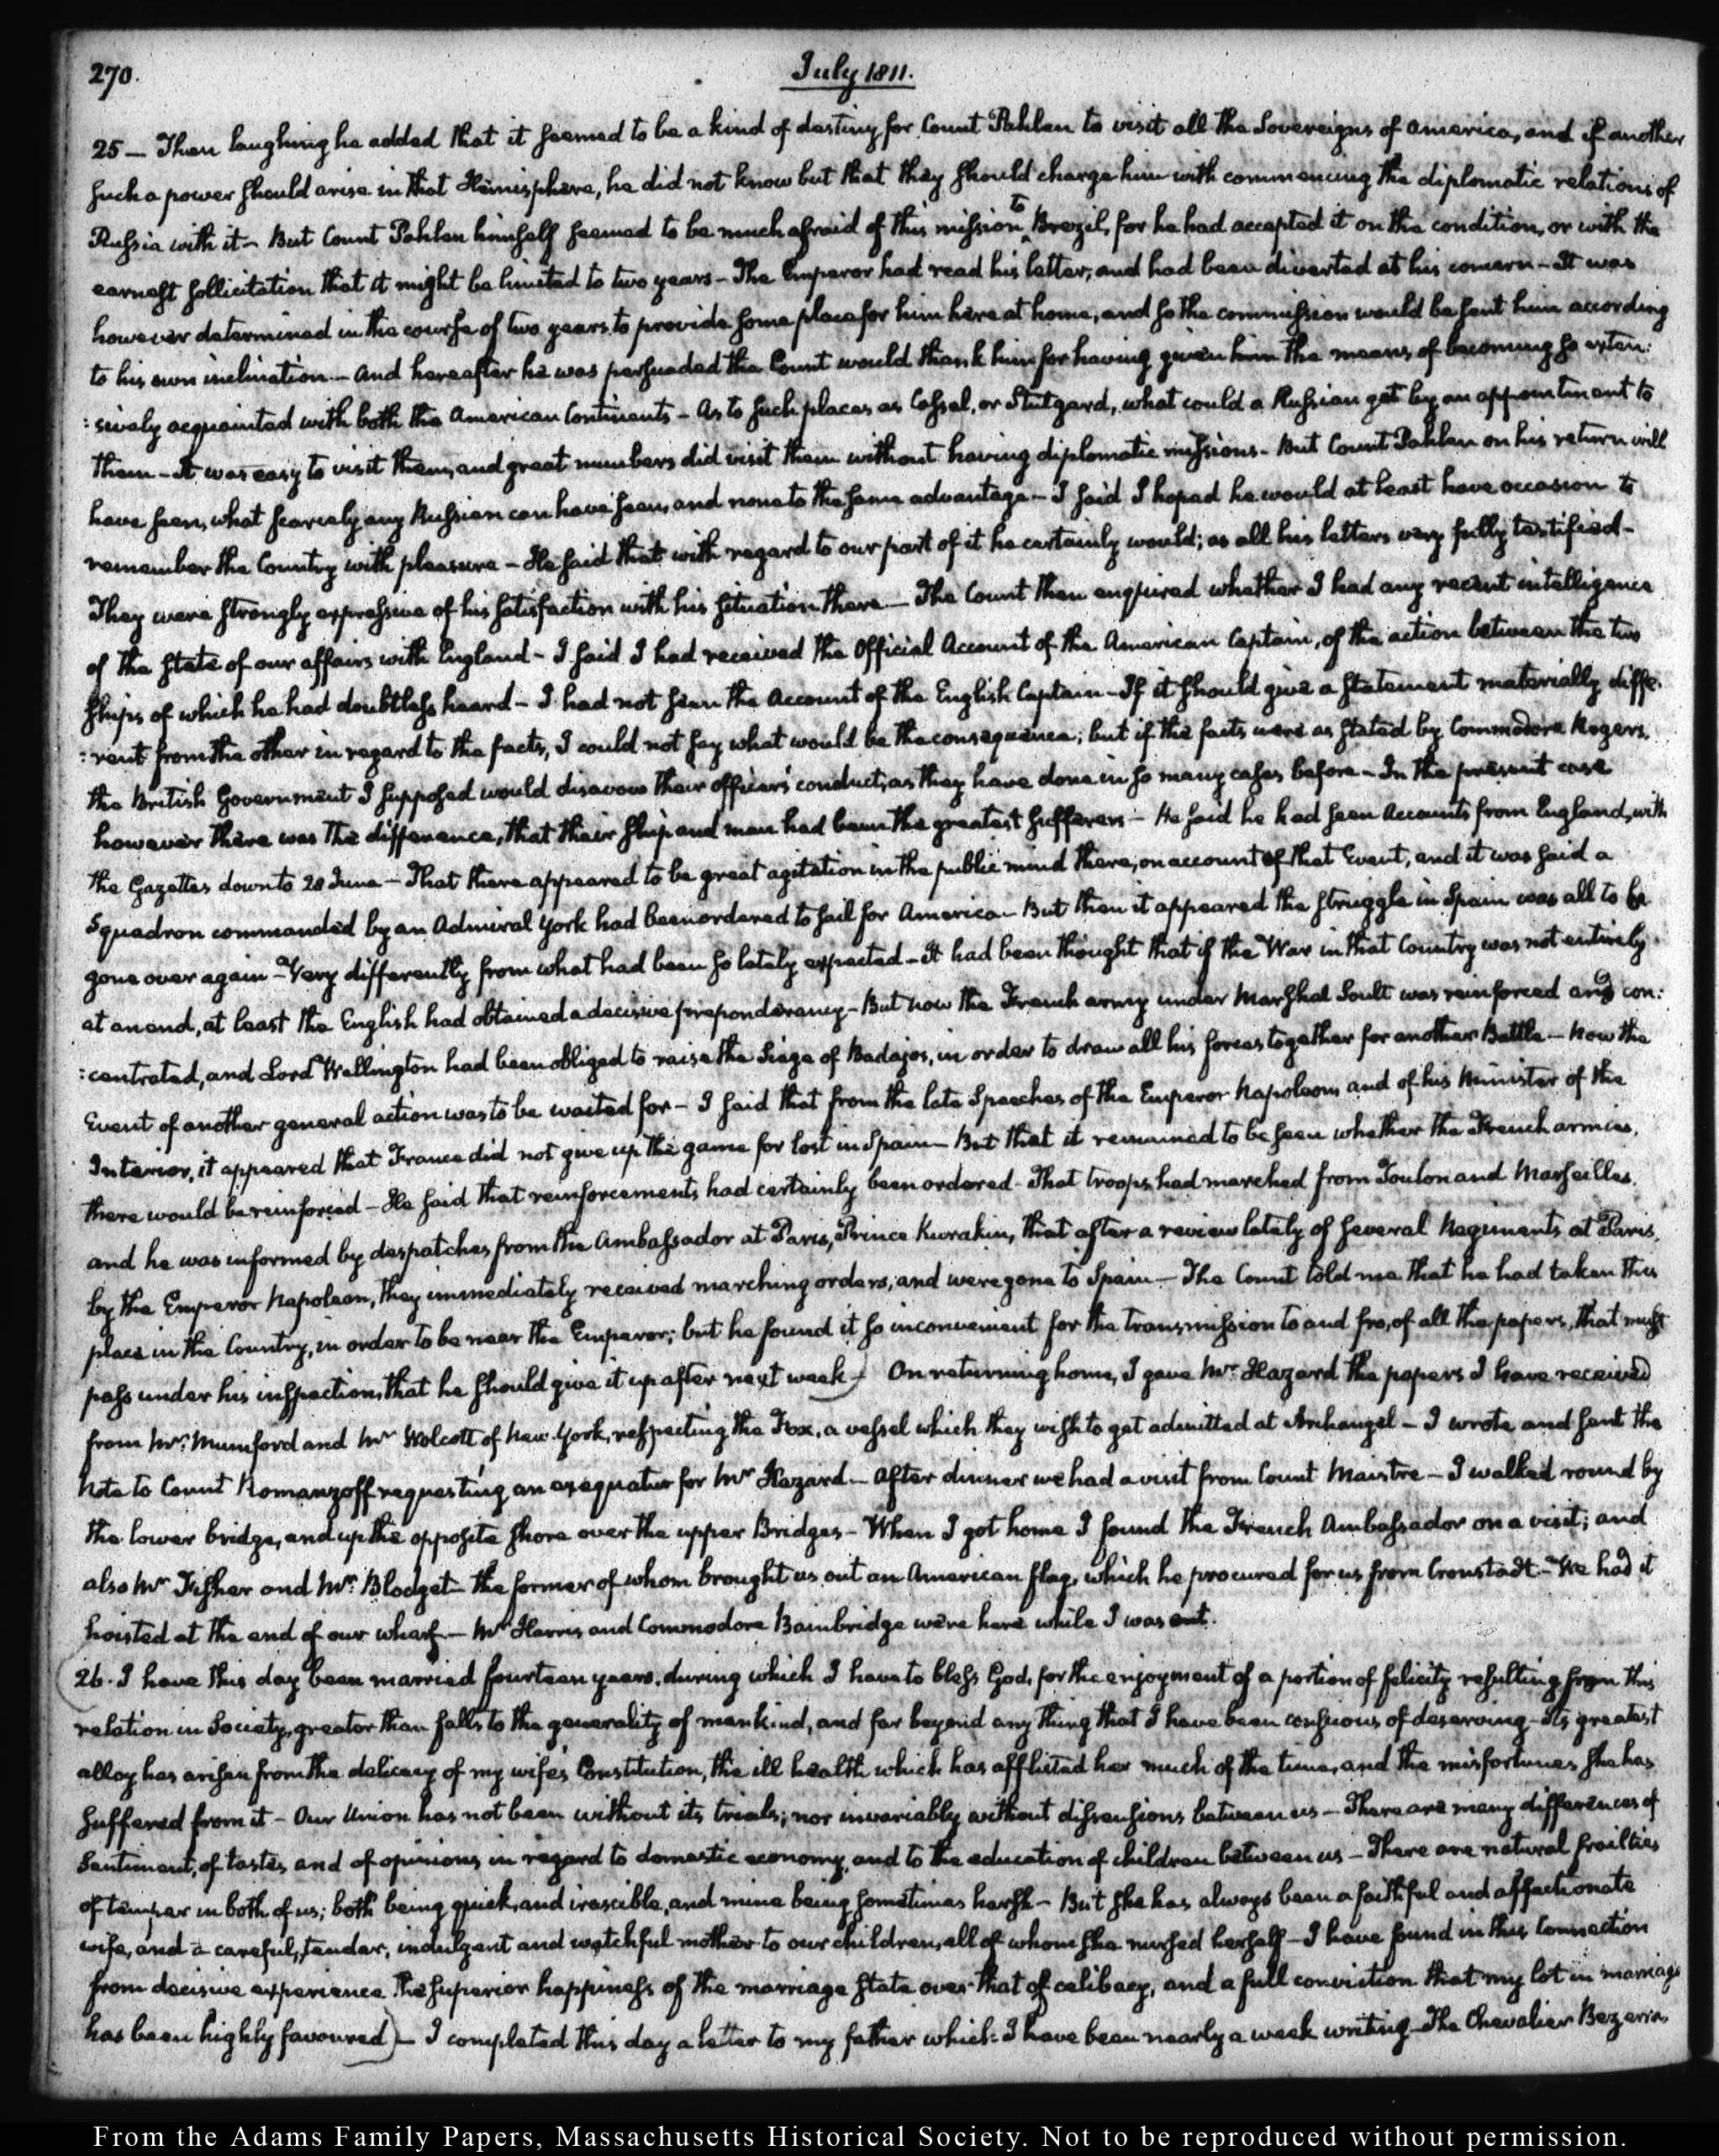 270.
July 1811.
25 — Then laughing he added that it seemed to be a kind of destiny for Count Pahlen to visit all the Sovereigns of America, and if another
such a power should arise in that Hemisphere, he did not know but that they should charge him with commencing the diplomatic relations of
Russia with it — But Count Pahlen himself seemed to be much afraid of this mission to Brezil, for he had accepted it on the condition, or with the
earnest sollicitation that it might be limited to two years — The Emperor had read his letter, and had been diverted at his concern — It was
however determined in the course of two years to provide some place for him here at home, and so the commission would be sent him according
to his own inclination — And hereafter he was persuaded the Count would thank him for having given him the means of becoming so exten:
:sively acquainted with both the American Continents — As to such places as Cassel, or Stutgard, what could a Russian get by an appointment to
them — It was easy to visit them, and great numbers did visit them without having diplomatic missions — But Count Pahlen on his return will
have seen, what scarcely any Russian can have seen, and none to the same advantage — I said I hoped he would at least have occasion to
remember the Country with pleasure — He said that with regard to our part of it he certainly would; as all his letters very fully testified —
They were strongly expressive of his satisfaction with his situation there — The Count then enquired whether I had any recent intelligence
of the State of our affairs with England — I said I had received the Official Account of the American Captain, of the action between the two
ships of which he had doubtless heard — I had not seen the Account of the English Captain — If it should give a statement materially diffe:
:rent from the other in regard to the facts, I could not say what would be the consequence; but if the facts were as stated by Commodore Rogers,
the British Government I supposed would disavow their officers' conduct, as they have done in so many cases before — In the present case
however there was the difference, that their ship and men had been the greatest sufferers — He said he had seen Accounts from England, with
the Gazettes down to 28 June — That there appeared to be great agitation in the public mind there, on account of that Event, and it was said a
Squadron commanded by an Admiral York had been ordered to sail for America — But then it appeared the struggle in Spain was all to be
gone over again — Very differently from what had been so lately expected — It had been thought that if the War in that Country was not entirely
at an end, at least the English had obtained a decisive preponderancy — But now the French army under Marshal Soult was reinforced and con:
:centrated, and Lord Wellington had been obliged to raise the Siege of Badajos, in order to draw all his forces together for another Battle — Now the
Event of another general action was to be waited for — I said that from the late Speeches of the Emperor Napoleon, and of his Minister of the
Interior, it appeared that France did not give up the game for lost in Spain — But that it remained to be seen whether the French armies,
there would be reinforced — He said that reinforcements had certainly been ordered — That troops had marched from Toulon and Marseilles,
and he was informed by despatches from the Ambassador at Paris, Prince Kurakin, that after a review lately of several Regiments at Paris,
by the Emperor Napoleon, they immediately received marching orders, and were gone to Spain — The Count told me that he had taken this
place in the Country, in order to be near the Emperor; but he found it so inconvenient for the transmission to and fro, of all the papers, that must
pass under his inspection, that he should give it up after next week) On returning home, I gave Mr. Hazard the papers I have received
from Mr. Mumford and Mr. Wolcott of New-York, respecting the Fox, a vessel which they wish to get admitted at Archangel — I wrote and sent the
Note to Count Romanzoff requesting an exequatur for Mr. Hazard — After dinner we had a visit from Count Maistre — I walked round by
the lower bridge, and up the opposite shore over the upper Bridges — When I got home I found the French Ambassador on a visit; and
also Mr. Fisher and Mr. Blodget — the former of whom brought us out an American flag, which he procured for us from Cronstadt — We had it
hoisted at the end of our wharf — Mr. Harris and Commodore Bainbridge were here while I was out.
26. I have this day been married fourteen years, during which I have to bless God, for the enjoyment of a portion of felicity resulting from this
relation in Society, greater than falls to the generality of mankind, and far beyond any thing that I have been conscious of deserving — Its greatest
alloy has arisen from the delicacy of my wife's Constitution, the ill health which has afflicted her much of the time, and the misfortunes she has
suffered from it — Our Union has not been without its trials; nor invariably without dissensions between us — There are many differences of
Sentiment, of tastes, and of opinions in regard to domestic economy, and to the education of children between us — There are natural frailties
of temper in both of us; both being quick, and irascible, and mine being sometimes harsh — But she has always been a faithful and affectionate
wife, and a careful, tender, indulgent and watchful mother to our children, all of whom she nursed herself — I have found in this Connection
from decisive experience the superior happiness of the marriage state over that of celibacy, and a full conviction that my lot in marriage
has been highly favoured) — I completed this day a letter to my father which I have been nearly a week writing — The Chevalier Bezerra,
From the Adams Family Papers, Massachusetts Historical Society. Not to be reproduced without permission.